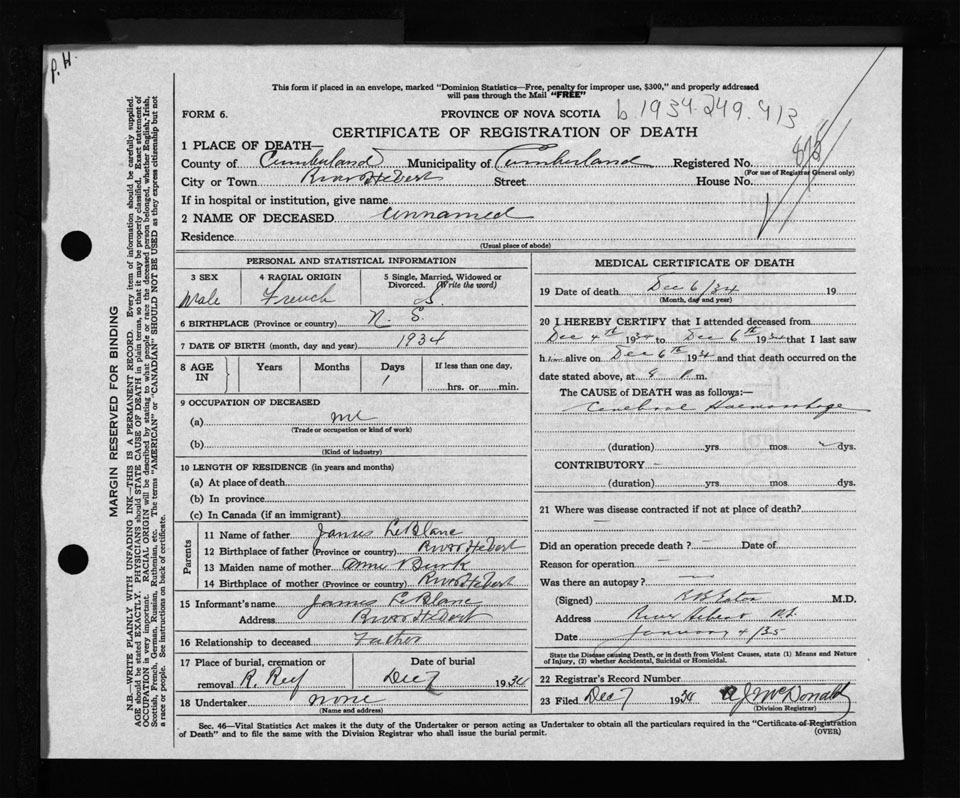 P. H.
This form if placed in an envelope, marked "Dominion Statistics—Free, penalty for improper use, $300," and properly addressed
will pass through the Mail "FREE"
b 1934-249-413
FORM 6.
PROVINCE OF NOVA SCOTIA
CERTIFICATE OF REGISTRATION OF DEATH
1 PLACE OF DEATH—
County of Cumberland Municipality of Cumberland Registered No.
(For use of Registrar General only)
City or Town River Hebert Street House No.
If in hospital or institution, give name
2 NAME OF DECEASED Unnamed
Residence
(Usual place of abode)
PERSONAL AND STATISTICAL INFORMATION
3 SEX Male
4 RACIAL ORIGIN French
5 Single, Married, Widowed or Divorced. (Write the word) S.
6 BIRTHPLACE (Province or country) N. S.
7 DATE OF BIRTH (month, day and year) 1934
8 AGE IN Years Months Days 1 If less than one day, hrs. or min.
9 OCCUPATION OF DECEASED
(a)
(Trade or occupation or kind of work)
(b)
(Kind of industry)
10 LENGTH OF RESIDENCE (in years and months)
(a) At place of death
(b) In province
(c) In Canada (if an immigrant)
Parents
11 Name of father James LeBlanc
12 Birthplace of father (Province or country) River Hebert
13 Maiden name of mother Annie Burk
14 Birthplace of mother (Province or country) River Hebert
15 Informant's name James LeBlanc
Address River Hebert
16 Relationship to deceased Father
17 Place of burial, cremation or removal R. Date of burial Dec 7 1934
18 Undertaker none
(Name and address)
MEDICAL CERTIFICATE OF DEATH
19 Date of death Dec 6/34 19
(Month, day and year)
20 I HEREBY CERTIFY that I attended deceased from
Dec 4th 1934 to Dec 6th 1934 that I last saw
h im alive on Dec 6th 1934 and that death occurred on
date stated above, at 9 P. m.
The CAUSE of DEATH was as follows:—
Cerebral Haemorrhage
(duration) yrs mos dys.
CONTRIBUTORY —
(duration) yrs. mos. dys.
21 Where was disease contracted if not at place of death?
—
Did an operation precede death? — Date of
Reason for operation —
Was there an autopsy? —
(Signed) M.D.
Address River Hebert N.S.
Date January 4/35
State the Disease causing Death, or in death from Violent Causes, state (1) Means and Nature
of Injury, (2) whether Accidental, Suicidal or Homicidal.
22 Registrar's Record Number
23 Filed Dec 7 1934 A J McDonald
(Division Registrar)
Sec. 46—Vital Statistics Act makes it the duty of the Undertaker or person acting as Undertaker to obtain all the particulars required in the "Certificate of Registration
of Death" and to file the same with the Division Registrar who shall issue the burial permit.
(OVER)
MARGIN RESERVED FOR BINDING
N.B.—WRITE PLAINLY WITH UNFADING INK—THIS IS A PERMANENT RECORD. Every item of information should be carefully supplied.
AGE should be stated EXACTLY. PHYSICIANS should STATE CAUSE OF DEATH in plain terms, so that it may be properly classified. Exact statement of
OCCUPATION is very important. RACIAL ORIGIN will be described by stating to what people or race the deceased person belonged, whether English, Irish,
Scottish, French, German, Russian, Ruthenian, etc. The terms "AMERICAN" or "CANADIAN" SHOULD NOT BE USED as they express citizenship but not
a race or people. See instructions on back of certificate.